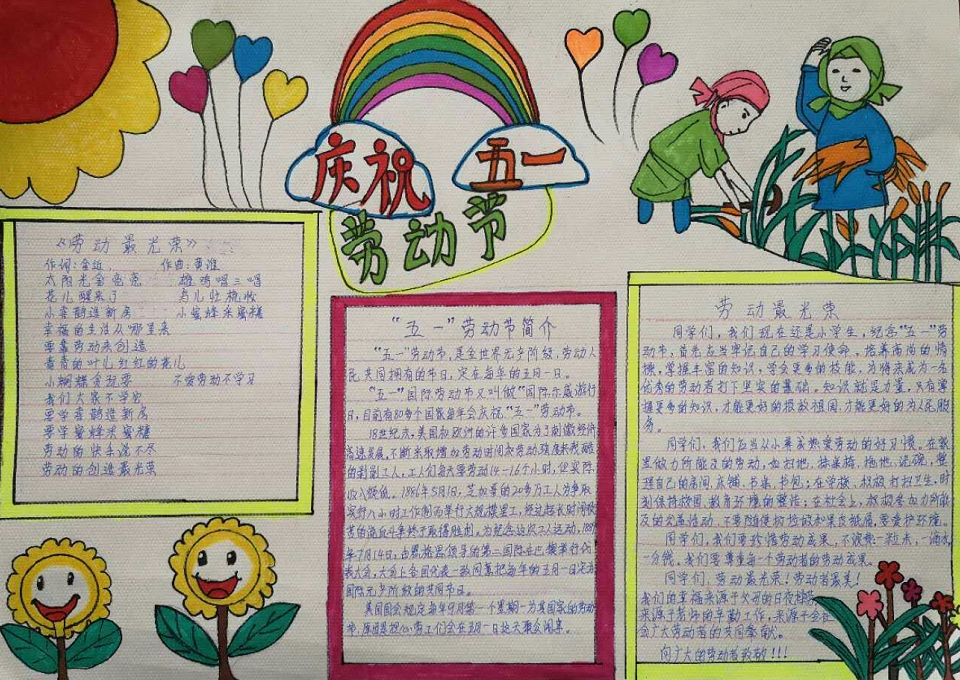 庆祝
五一
劳动节
《劳动最光荣》
作词：金近 作曲：黄准
太阳光金亮亮 雄鸡唱三唱
花儿醒来了 鸟儿忙梳妆
小喜鹊造新房 小蜜蜂采蜜糖
幸福的生活从哪里来
要靠劳动来创造
青青的叶儿红红的花儿
小蝴蝶贪玩耍 不爱劳动不学习
我们大家不学它
要学喜鹊造新房
要学蜜蜂采蜜糖
劳动的快乐说不尽
劳动的创造最光荣
“五一”劳动节简介
“五一”劳动节，是全世界无产阶级、劳动人
民共同拥有的节日，定在每年的五月一日。
“五一”国际劳动节又叫做“国际示威游行
日，目前有80多个国家每年会庆祝“五一”劳动节。
18世纪末，美国和欧洲的许多国家为了刺激经济
高速发展，不断采取增加劳动时间和劳动强度来残酷
的剥削工人，工人们每天要劳动14-16个小时，但实际
收入很低。1886年5月1日，芝加哥的20多万工人为争取
实行八小时工作制而举行大规模罢工，经过
的流血斗争终于取得胜利，为纪念这次工人运动，1889
年7月14日，由恩格斯领导的第二国际在巴黎举行代
表大会，大会上各国代表一致同意把每年的五月一日定为
国际无产阶级的共同节日。
美国国会规定每年9月第一个星期一为美国家的劳动
节，原因是担心劳工们会在五月一日这天聚众闹事。
劳动最光荣
同学们，我们现在还是小学生，纪念“五一”劳
动节，首先应当牢记自己的学习使命，培养高尚的情
操，掌握丰富的知识，学会更多的技能，为将来成为一名
优秀的劳动者打下坚实的基础。知识就是力量，只有掌
握更多的知识，才能更好的报效祖国，才能更好的为人民服
务。
同学们，我们应当从小养成热爱劳动的好习惯。在家
里做力所能及的劳动，如扫地、擦桌椅、拖地、洗碗，整
理自己的房间、床铺、书桌、书包；在学校，积极打扫卫生，时
刻保持校园、教育环境的整洁；在社会上，积极参加力所能
及的公益活动，不要随便扔垃圾和果皮纸屑，要爱护环境。
同学们，我们要珍惜劳动成果，不浪费一粒米，一滴水，
一分钱。我们要尊重每一个劳动者的劳动成果。
同学们，劳动最光荣！劳动者最美！
我们的幸福来源于父母的日夜操劳，
来源于老师的辛勤工作，来源于全社
会广大劳动者的共同奉献。
向广大的劳动者致敬！！！